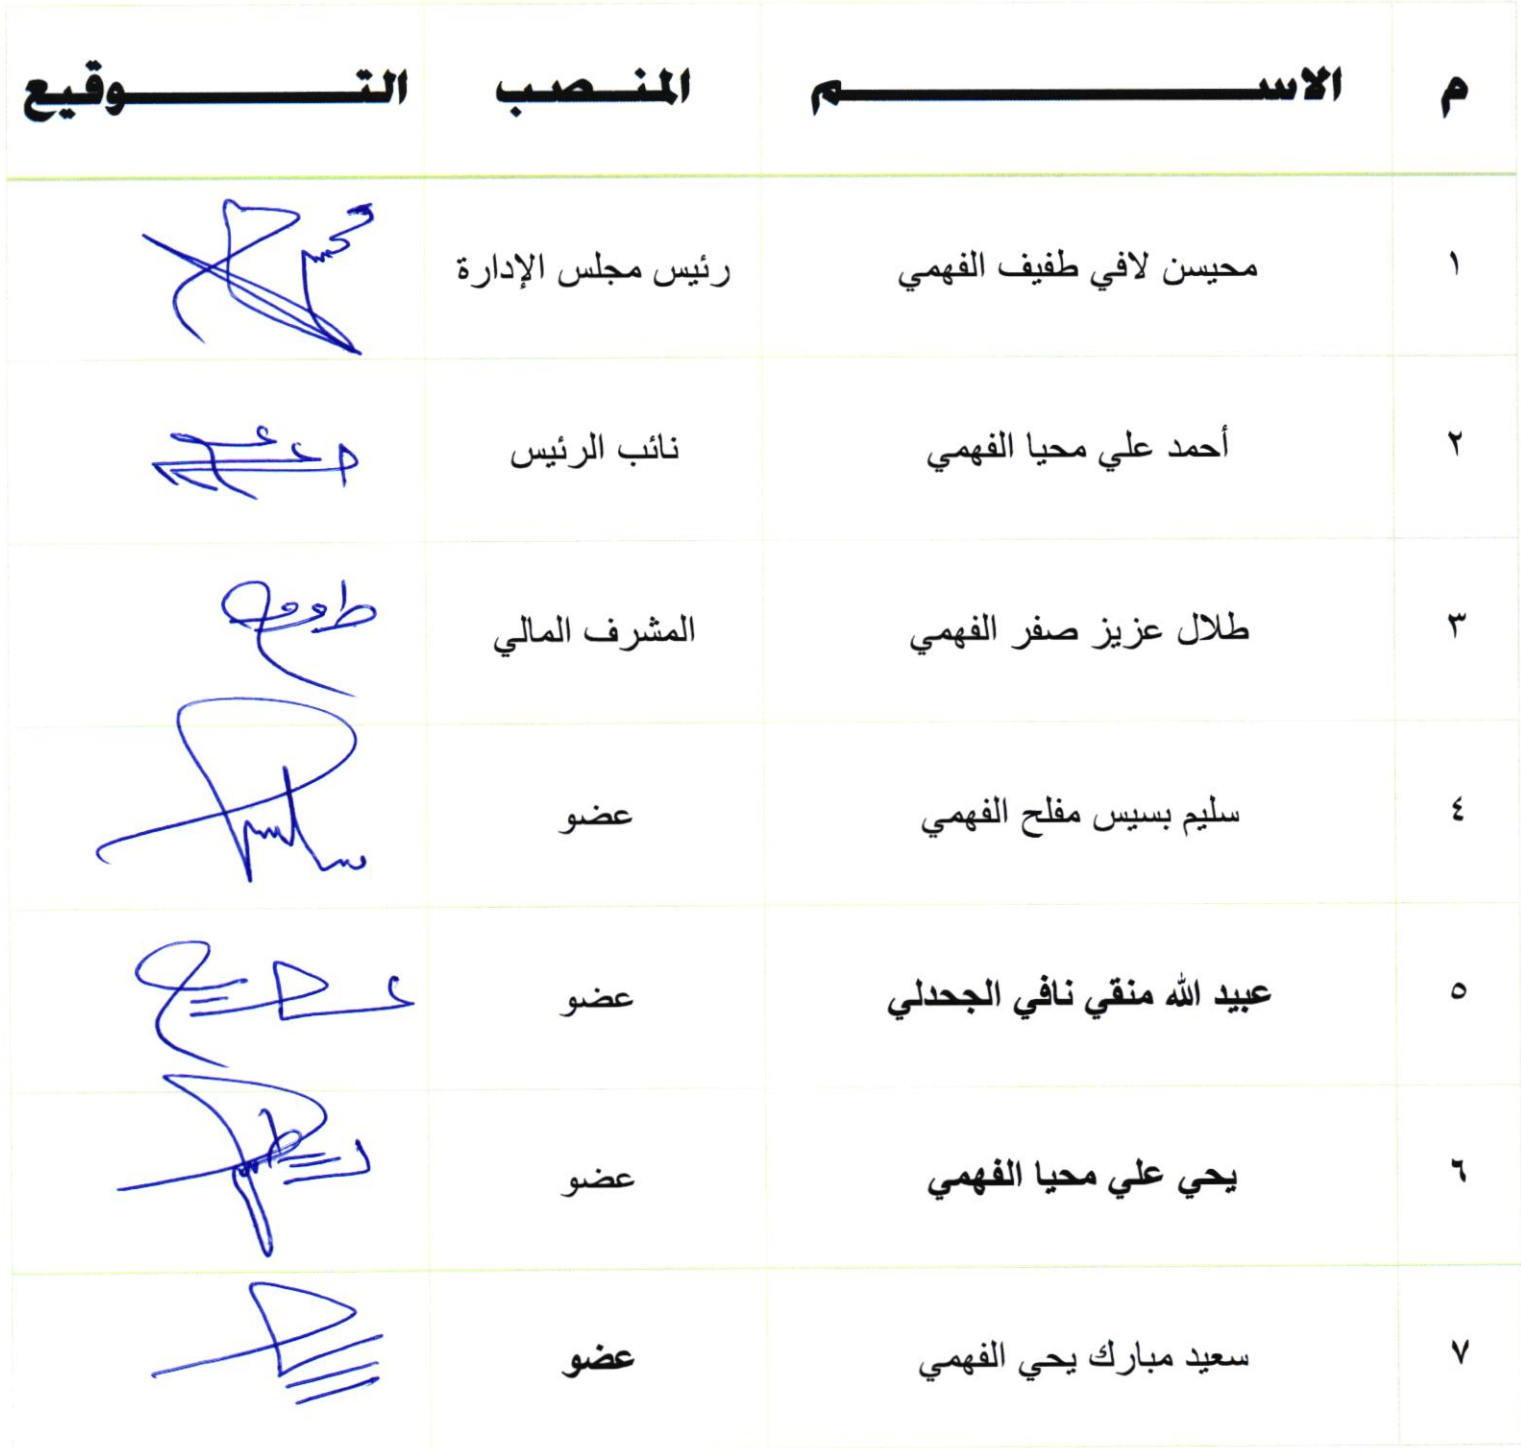 م الاســــم المنــصب التـــــوقيع
١ محيسن لافي طفيف الفهمي رئيس مجلس الإدارة
٢ أحمد علي محيا الفهمي نائب الرئيس
٣ طلال عزيز صفر الفهمي المشرف المالي
٤ سليم بسيس مفلح الفهمي عضو
٥ عبيد الله منقي نافي الجحدلي عضو
٦ يحي علي محيا الفهمي عضو
٧ سعيد مبارك يحي الفهمي عضو